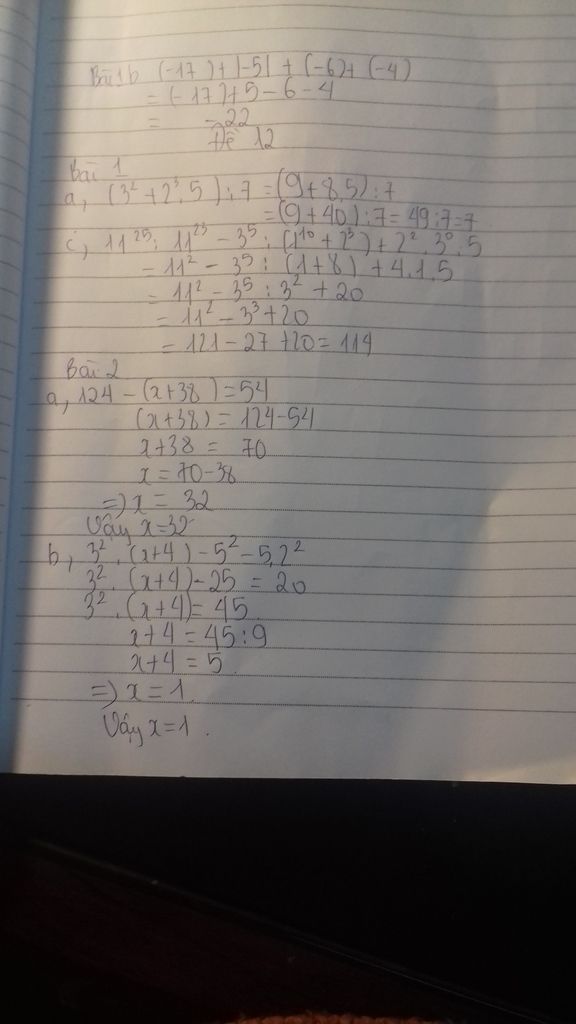 Bài 1b (-17) + |-5| + (-6) + (-4)
= (-17) + 5 - 6 - 4
= -22
Đề 12
Bài 1
a, (3² + 2³.5) : 7 = (9 + 8.5) : 7
= (9 + 40) : 7 = 49 : 7 = 7
c, 11²⁵ : 11²³ - 3⁵ : (1¹⁰ + 2³) + 2².3⁰.5
= 11² - 3⁵ : (1 + 8) + 4.1.5
= 11² - 3⁵ : 3² + 20
= 11² - 3³ + 20
= 121 - 27 + 20 = 114
Bài 2
a, 124 - (x + 38) = 54
(x + 38) = 124 - 54
x + 38 = 70
x = 70 - 38
=> x = 32
Vậy x = 32
b, 3².(x + 4) - 5² - 5.2²
3².(x + 4) - 25 = 20
3².(x + 4) = 45
x + 4 = 45 : 9
x + 4 = 5
=> x = 1
Vậy x = 1.